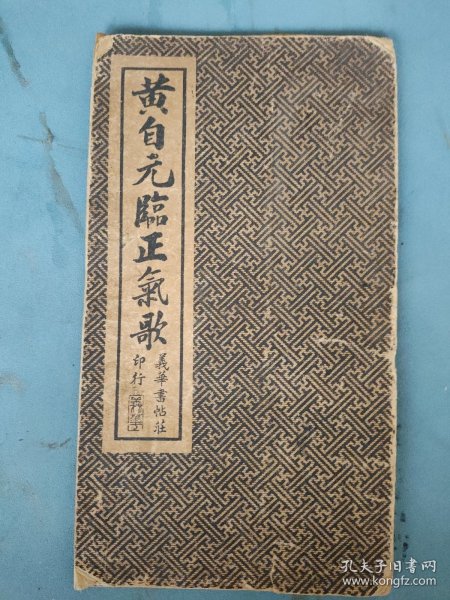 黄自元臨正氣歌
義華書帖莊
印行
孔夫子旧书网
www.kongfz.com